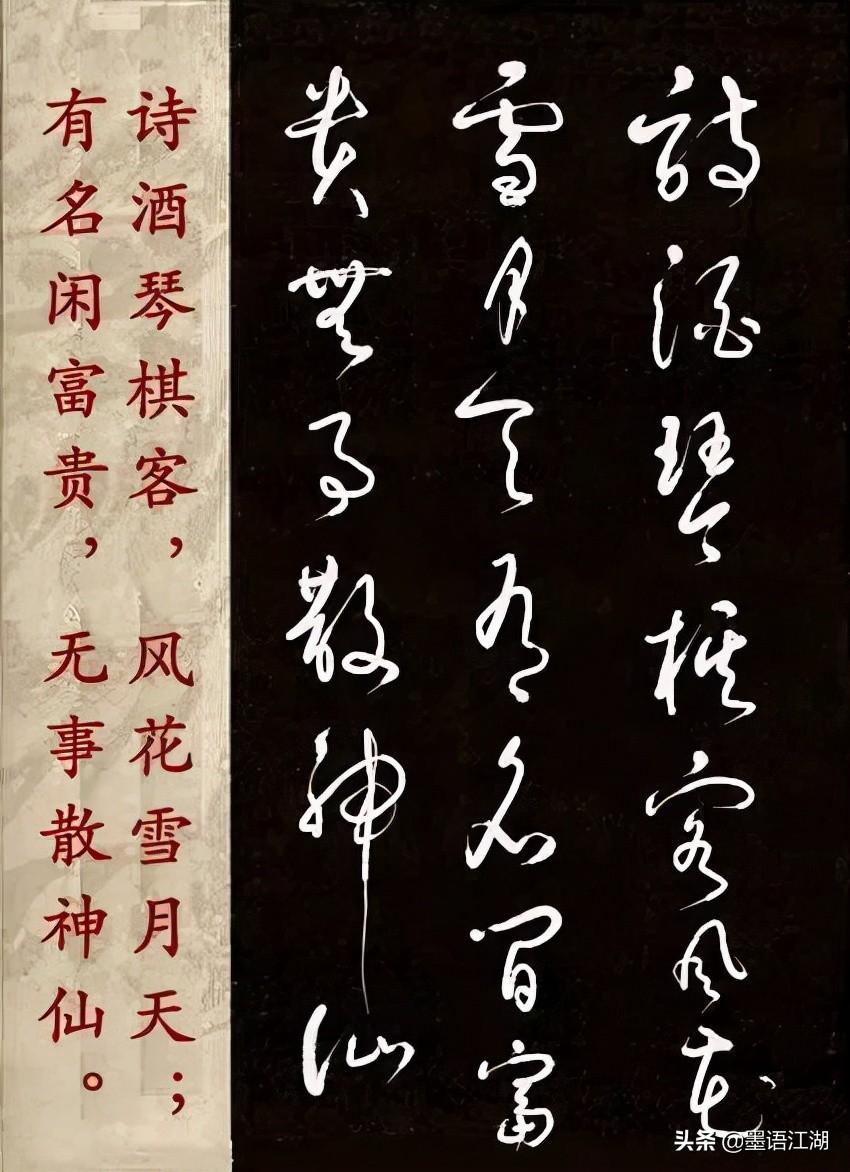 詩酒琴棋客風花
雪月天有名閒富
貴無事散神仙
诗酒琴棋客，风花雪月天；
有名闲富贵，无事散神仙。
头条 @墨语江湖